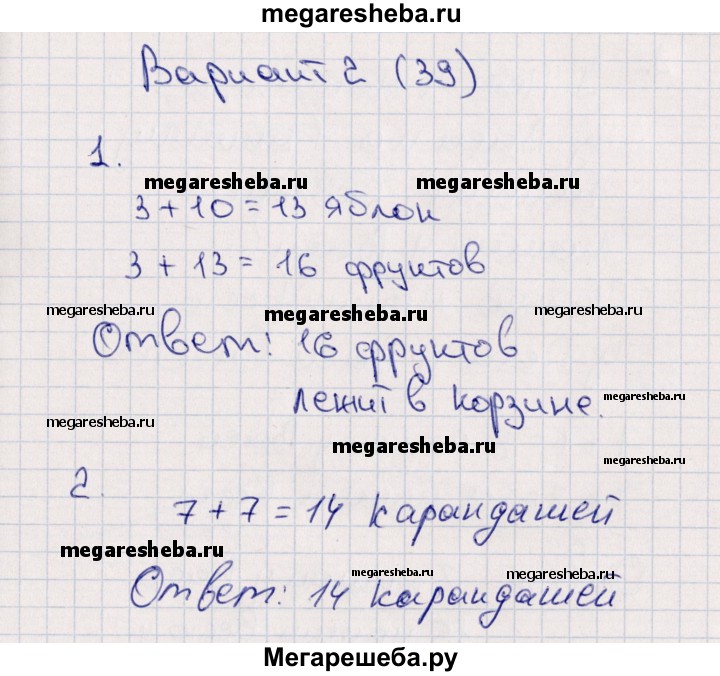 megaresheba.ru
Вариант 2 (39)
1.
megaresheba.ru megaresheba.ru
3 + 10 = 13 яблок
3 + 13 = 16 фруктов
megaresheba.ru megaresheba.ru megaresheba.ru
Ответ: 16 фруктов
лежит в корзине.
megaresheba.ru
megaresheba.ru
megaresheba.ru
megaresheba.ru
2.
7 + 7 = 14 карандашей
megaresheba.ru
megaresheba.ru megaresheba.ru
Ответ: 14 карандашей
Мегарешеба.ру